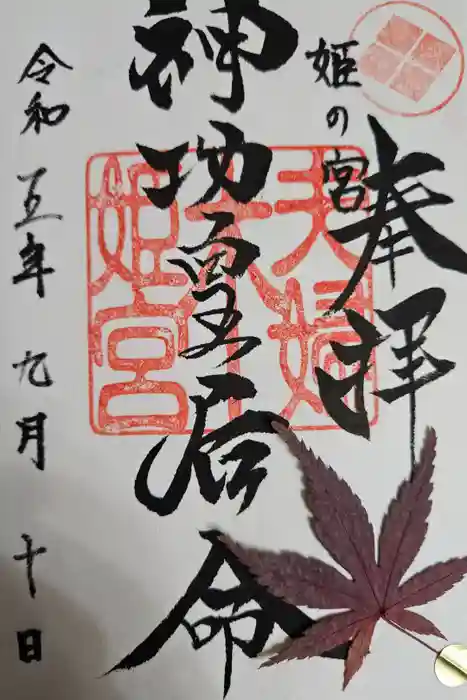 奉拝
姫の宮
神功皇后命
夫婦
木
姫宮
令和五年九月十日